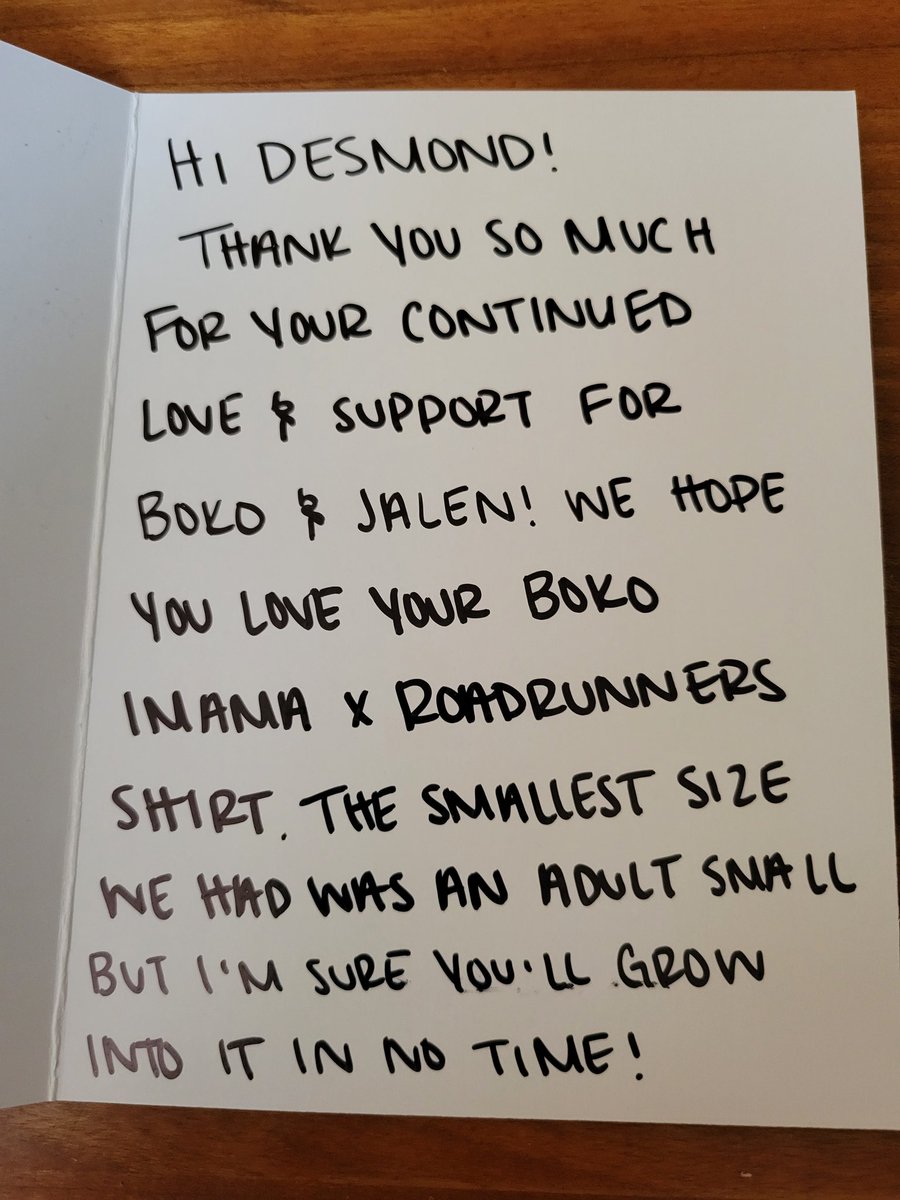 HI DESMOND!
THANK YOU SO MUCH
FOR YOUR CONTINUED
LOVE & SUPPORT FOR
BOKO & JALEN! WE HOPE
YOU LOVE YOUR BOKO
IMAMA X ROADRUNNERS
SHIRT. THE SMALLEST SIZE
WE HAD WAS AN ADULT SMALL
BUT I'M SURE YOU'LL GROW
INTO IT IN NO TIME!